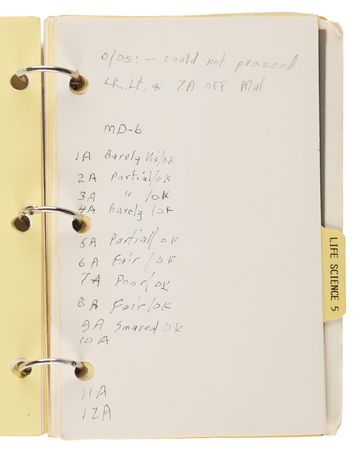 0/0S: - could not proceed
LK. Lt. & 7A off Mal
MD-6
1A Barely Vis/OK
2A Partial/OK
3A " /OK
4A Barely /OK
5A Partial/ OK
6A Fair/OK
7A Poor/OK
8A Fair/OK
9A Smeared OK
10A
11A
12A
LIFE SCIENCE 5